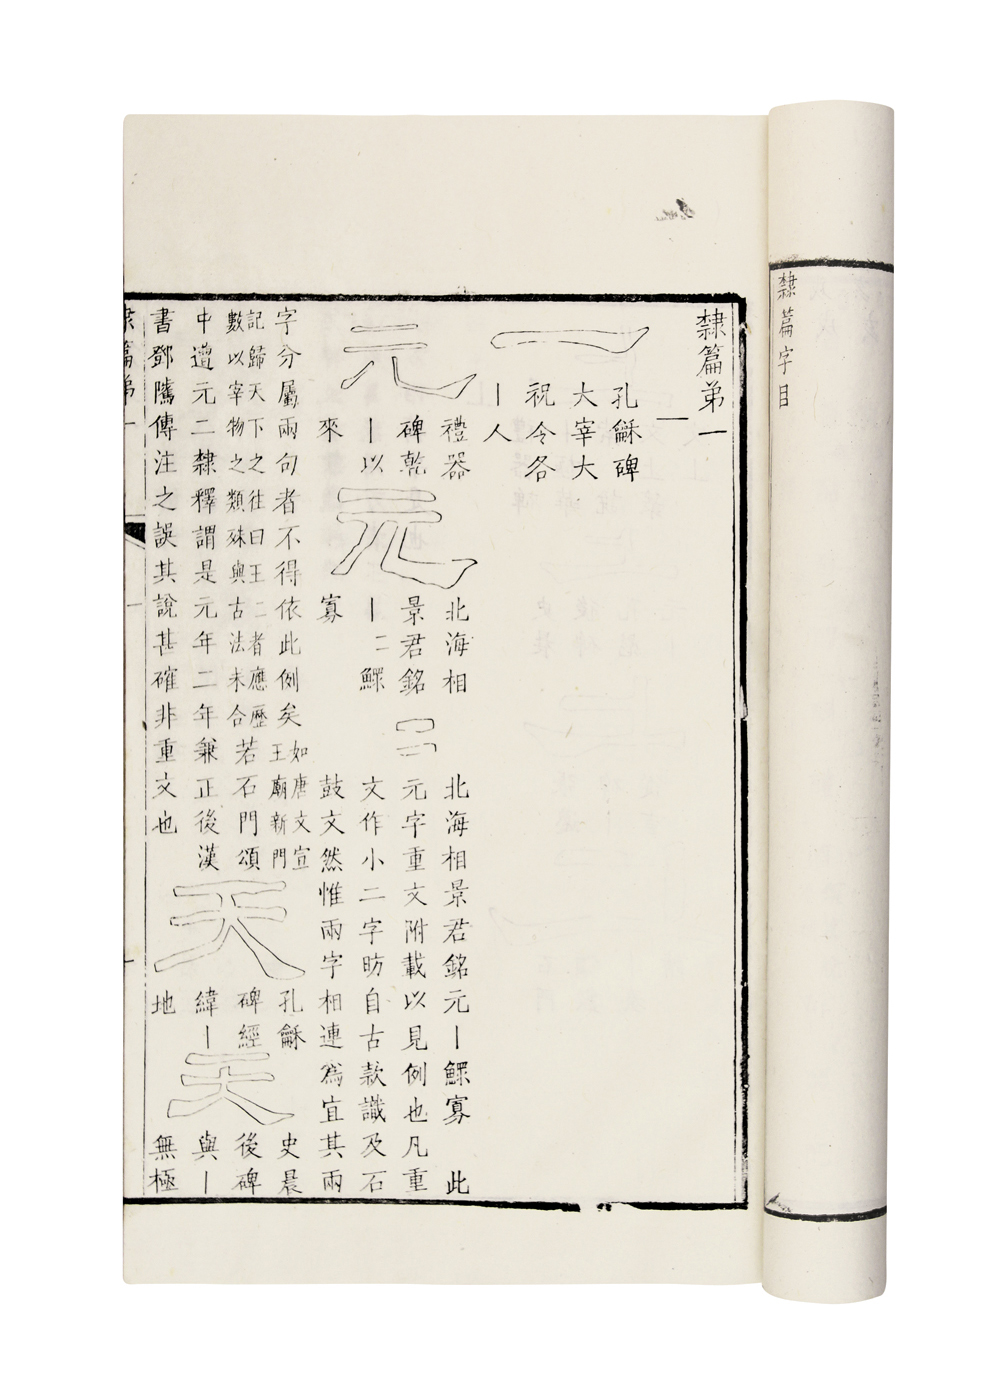 隸篇字目
隸篇弟一
一
一
孔龢碑
大宰大
祝令各
丨人
元
禮器
碑乾
丨以
來
元
北海相
景君銘
丨二鰥
寡
二
北海相景君銘元丨鰥寡 此
元字重文附載以見例也凡重
文作小二字昉自古款識及石
鼓文然惟兩字相連為宜其兩
字分屬兩句者不得依此例矣
如唐文宣
王廟新門
記歸天下之往曰王二者應歷
數以宰物之類殊與古法未合
若石門頌
中遭元二隸釋謂是元年二年兼正後漢
書鄧隲傳注之誤其說甚確非重文也
天
孔龢
碑經
緯丨
地
天
史晨
後碑
與丨
無極
隸篇弟一
一